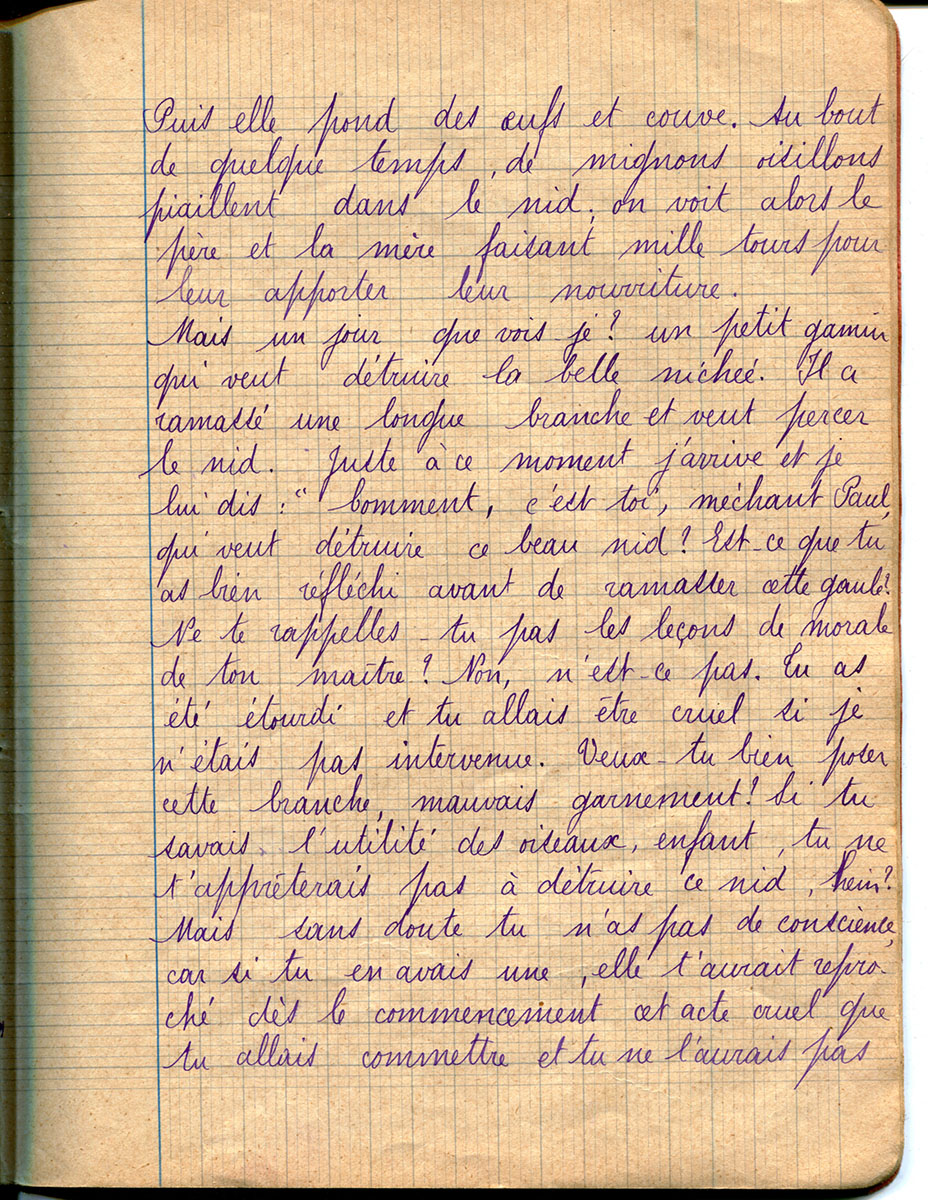 Puis elle pond des œufs et couve. Au bout
de quelque temps, de mignons oisillons
piaillent dans le nid, on voit alors le
père et la mère faisant mille tours pour
leur apporter leur nourriture.
Mais un jour que vois-je? un petit gamin
qui veut détruire la belle nichée. Il a
ramassé une longue branche et veut percer
le nid. Juste à ce moment j'arrive et je
lui dis : "Comment, c'est toi, méchant Paul,
qui veut détruire ce beau nid? Est-ce que tu
as bien réfléchi avant de ramasser cette gaule?
Ne te rappelles-tu pas les leçons de morale
de ton maître? Non, n'est-ce pas. Tu as
été étourdi et tu allais être cruel si je
n'étais pas intervenue. Veux-tu bien poser
cette branche, mauvais garnement! Si tu
savais l'utilité des oiseaux, enfant, tu ne
t'apprêterais pas à détruire ce nid, hein?
Mais sans doute tu n'as pas de conscience,
car si tu en avais une, elle t'aurait repro-
ché dès le commencement cet acte cruel que
tu allais commettre et tu ne l'aurais pas